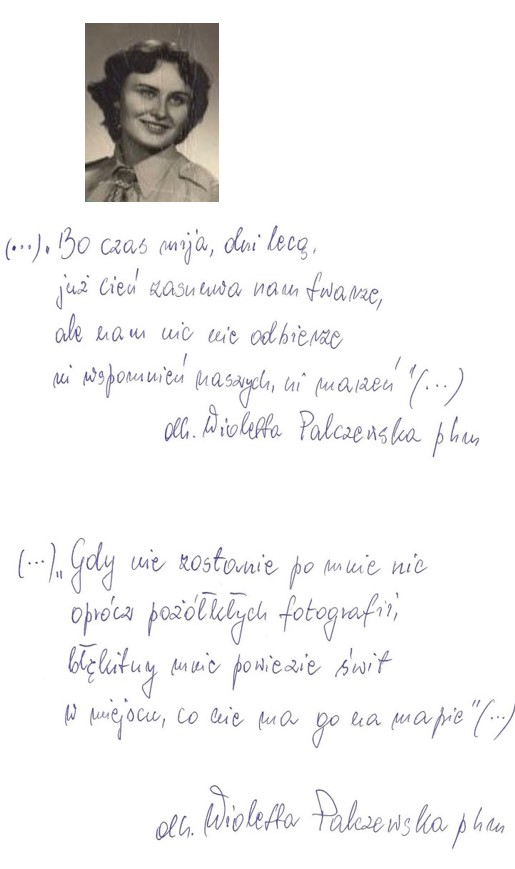 (...). Bo czas mija, dni lecą,
już cień zasnuwa nam twarze,
ale nam nic nie odbierze
ni wspomnień naszych, ni marzeń" (...)
dh. Wioletta Palczewska phm
(...) „Gdy nie zostanie po mnie nic
oprócz pożółkłych fotografii,
błękitny mnie powiezie świt
w miejscu, co nie ma go na mapie" (...)
dh. Wioletta Palczewska phm